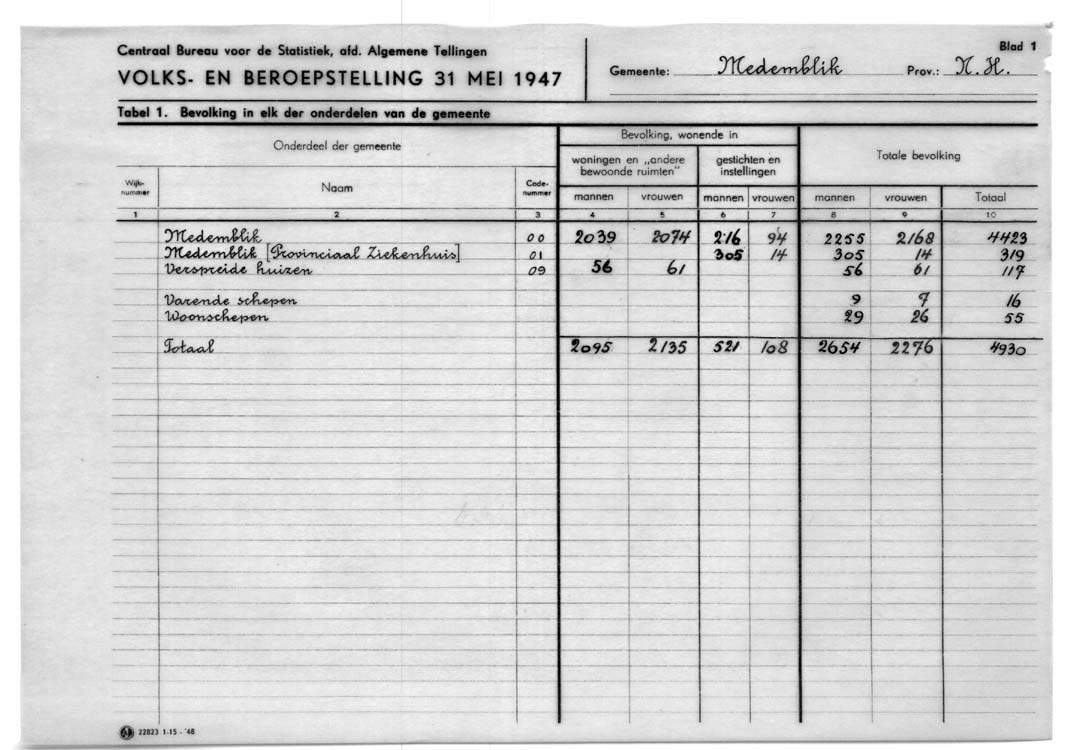 Centraal Bureau voor de Statistiek, afd. Algemene Tellingen
VOLKS- EN BEROEPSTELLING 31 MEI 1947
Gemeente: Medemblik Prov.: N. H.
Blad 1
Tabel 1. Bevolking in elk der onderdelen van de gemeente
Onderdeel der gemeente
Bevolking, wonende in
Totale bevolking
woningen en „andere bewoonde ruimten"
gestichten en instellingen
Wijk-nummer Naam Code-nummer mannen vrouwen mannen vrouwen mannen vrouwen Totaal
1 2 3 4 5 6 7 8 9 10
Medemblik 00 2039 2074 216 94 2255 2168 4423
Medemblik [Provinciaal Ziekenhuis] 01 305 14 305 14 319
Verspreide huizen 09 56 61 56 61 117
Varende schepen 9 7 16
Woonschepen 29 26 55
Totaal 2095 2135 521 108 2654 2276 4930
22823 1-15 - '48